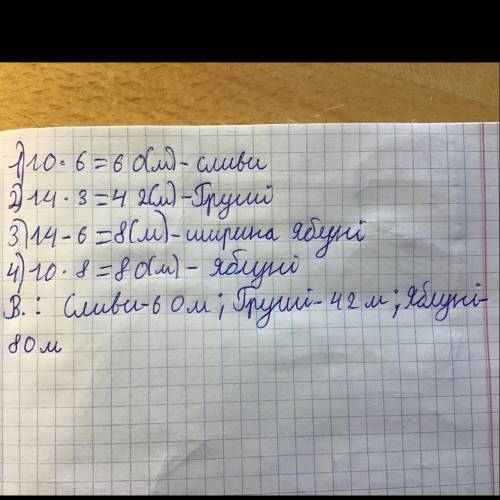 1) 10 · 6 = 60(м) - сливи
2) 14 · 3 = 42(м) - Груші
3) 14 - 6 = 8(м) - ширина Яблуні
4) 10 · 8 = 80(м) - Яблуні
В.: Сливи - 60м; Груші - 42м; Яблуні -
80м